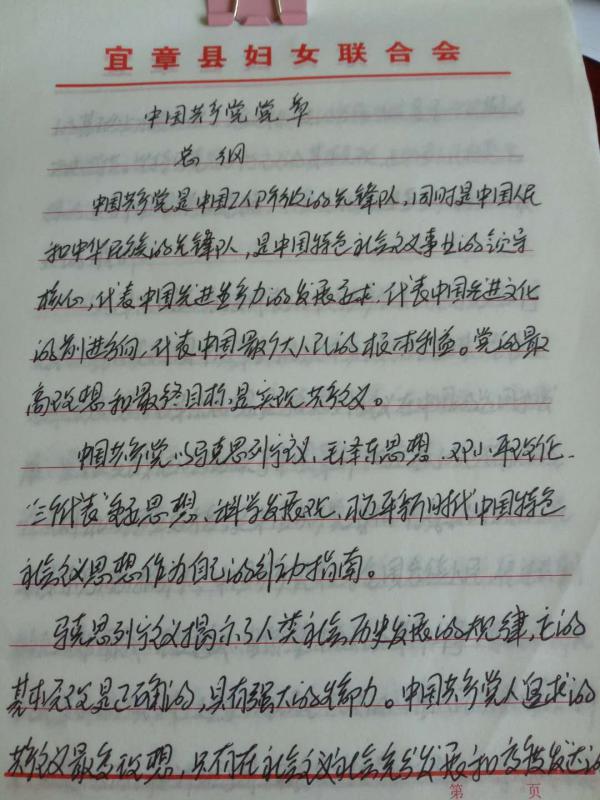 宜章县妇女联合会
中国共产党党章
总纲
中国共产党是中国工人阶级的先锋队，同时是中国人民
和中华民族的先锋队，是中国特色社会主义事业的领导
核心，代表中国先进生产力的发展要求，代表中国先进文化
的前进方向，代表中国最广大人民的根本利益。党的最
高理想和最终目标是实现共产主义。
中国共产党以马克思列宁主义、毛泽东思想、邓小平理论、
“三个代表”重要思想、科学发展观、习近平新时代中国特色
社会主义思想作为自己的行动指南。
马克思列宁主义揭示了人类社会历史发展的规律，它的
基本原理是正确的，具有强大的生命力。中国共产党人追求的
共产主义最高理想，只有在社会主义社会充分发展和高度发达的
第 页